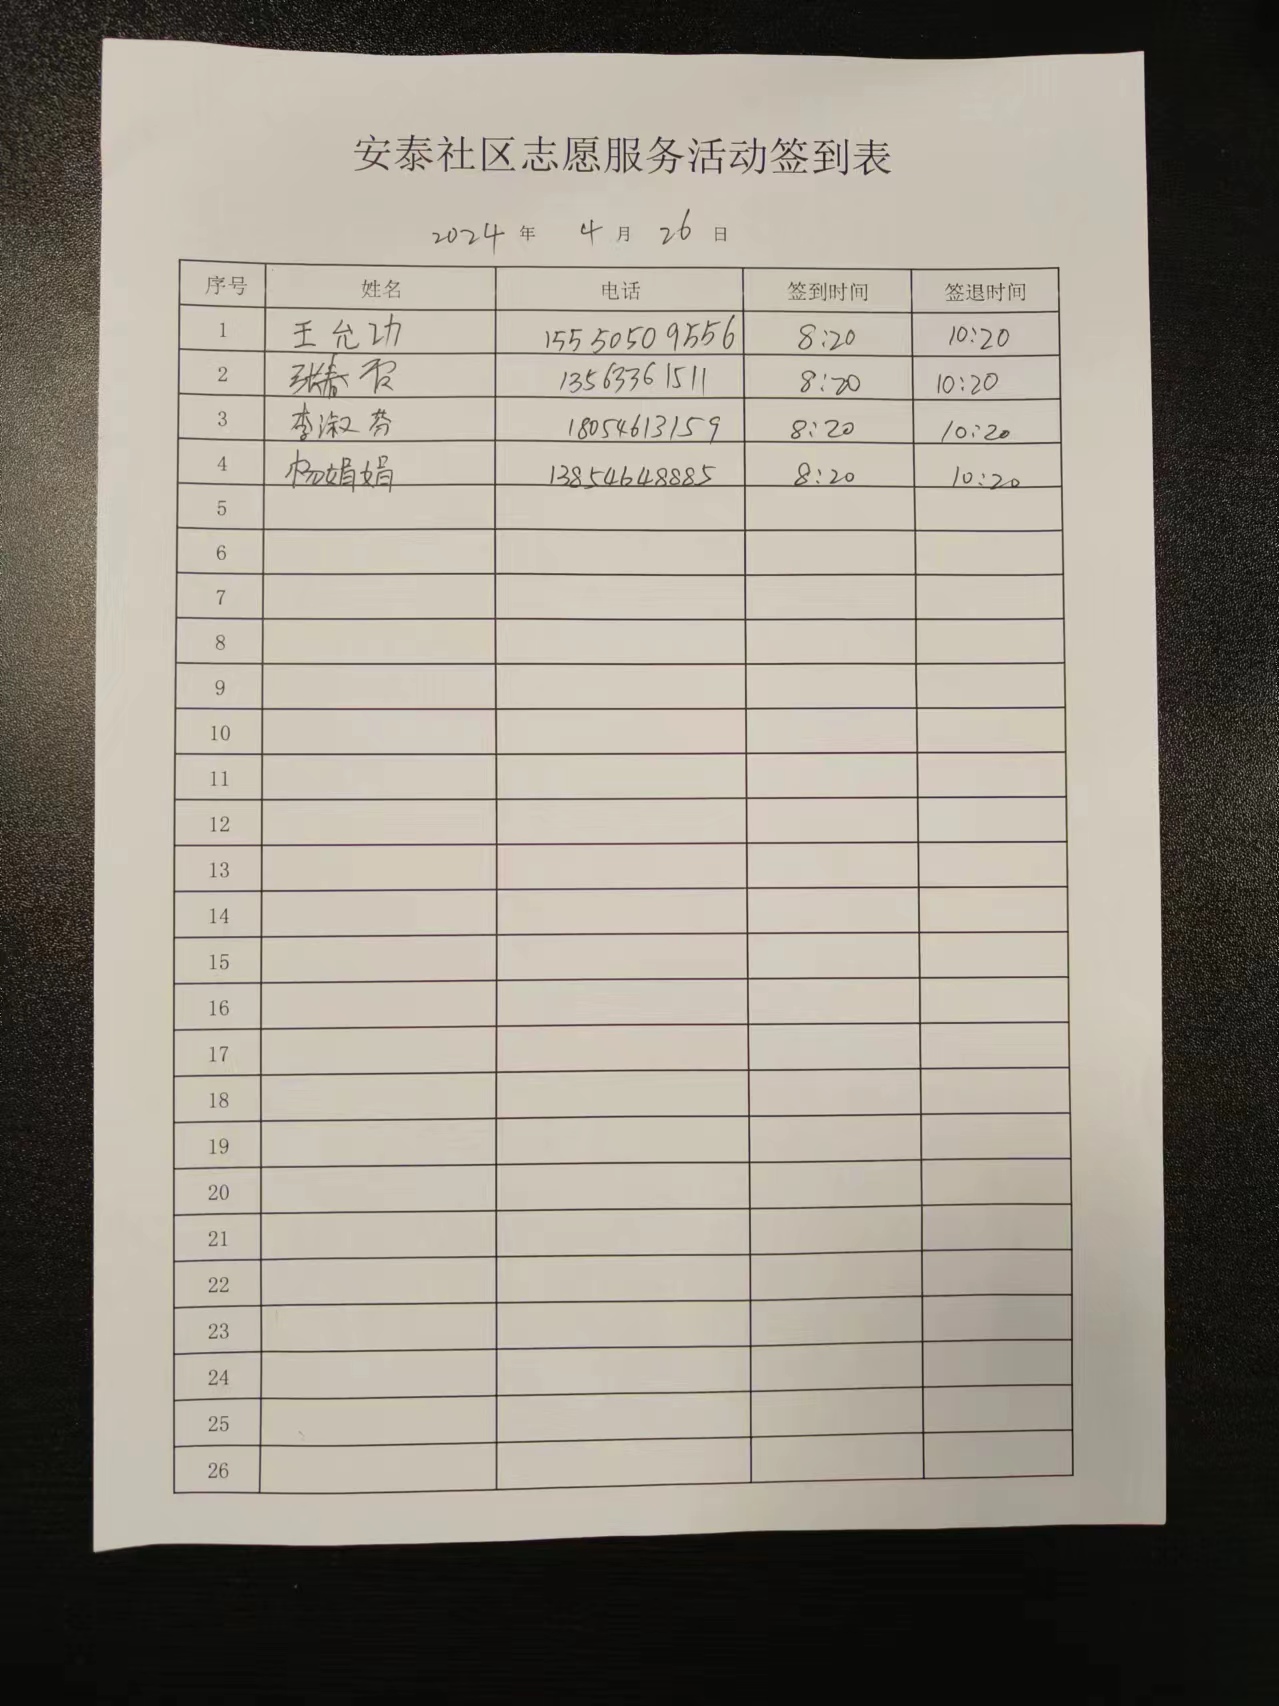 安泰社区志愿服务活动签到表
2024 年 4 月 26 日
序号 姓名 电话 签到时间 签退时间
1 王允功 15550509556 8:20 10:20
2 张春 13563361511 8:20 10:20
3 李淑芬 18054613159 8:20 10:20
4 杨娟娟 13854648885 8:20 10:20
5
6
7
8
9
10
11
12
13
14
15
16
17
18
19
20
21
22
23
24
25
26